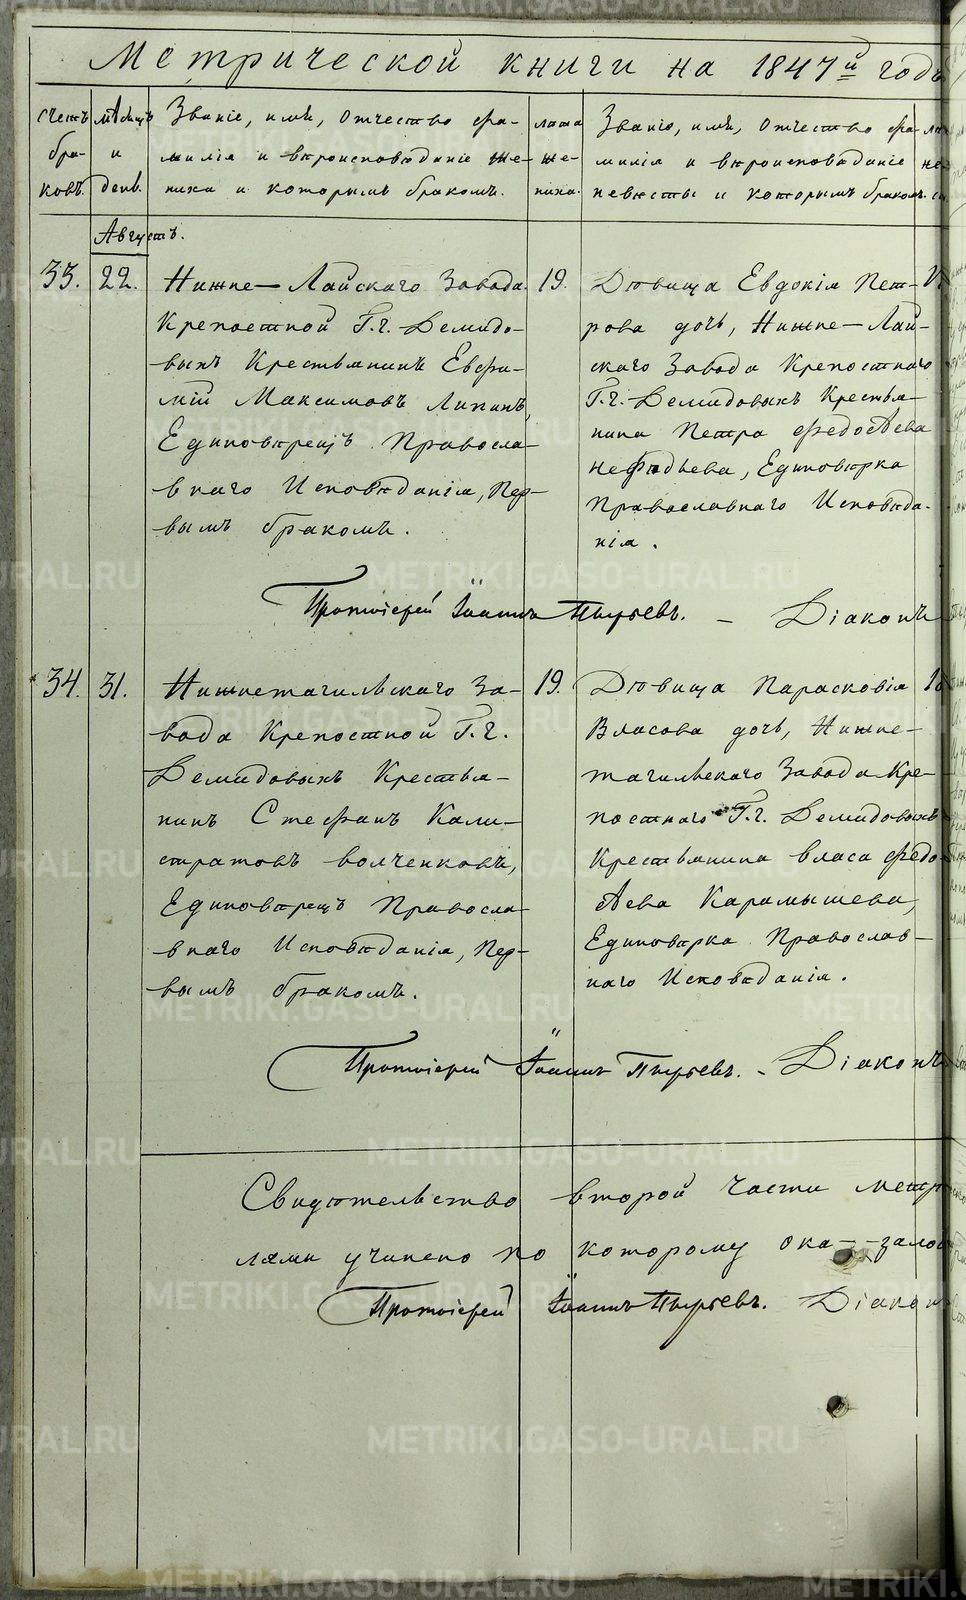 Метрической книги на 1847й годъ
Счетъ браковъ.
мѣсяцъ и день.
Званіе, имя, отчество фа-
милія и вѣроисповѣданіе же-
ниха и которымъ бракомъ.
лѣта же-
ниха.
Званіе, имя, отчество фа-
милія и вѣроисповѣданіе
невѣсты и которымъ бракомъ.
Августъ.
33.
22.
Нижне-Лайскаго Завода
Крепостной Г.г. Демидо-
выхъ Крестьянинъ Евфи-
мій Максимовъ Липинъ,
Единовѣрецъ Правосла-
внаго Исповѣданія, Пер-
вымъ бракомъ.
19.
Дѣвица Евдокія Пет-
рова дочь, Нижне-Лай-
скаго Завода Крепостнаго
Г.г. Демидовыхъ Крестья-
нина Петра Федосѣева
Нефѣдьева, Единовѣрка
Православнаго Исповѣда-
нія.
Протоіерей Іоаннъ Пырьевъ. - Діаконъ
34.
31.
Нижнетагильскаго За-
вода Крепостной Г.г.
Демидовыхъ Крестья-
нинъ Стефанъ Кали-
стратовъ Волченковъ,
Единовѣрецъ Правосла-
внаго Исповѣданія, Пер-
вымъ бракомъ.
19.
Дѣвица Парасковія
Власова дочь, Нижне-
тагильскаго Завода Кре-
постнаго Г.г. Демидовыхъ
Крестьянина Власа Федо-
сѣева Карамышева,
Единовѣрка Православ-
наго Исповѣданія.
Протоіерей Іоаннъ Пырьевъ. - Діаконъ
Свидѣтельство второй части метр
лями учинено по которому ока--залос
Протоіерей Іоаннъ Пырьевъ. Діакон
METRIKI.GASO-URAL.RU